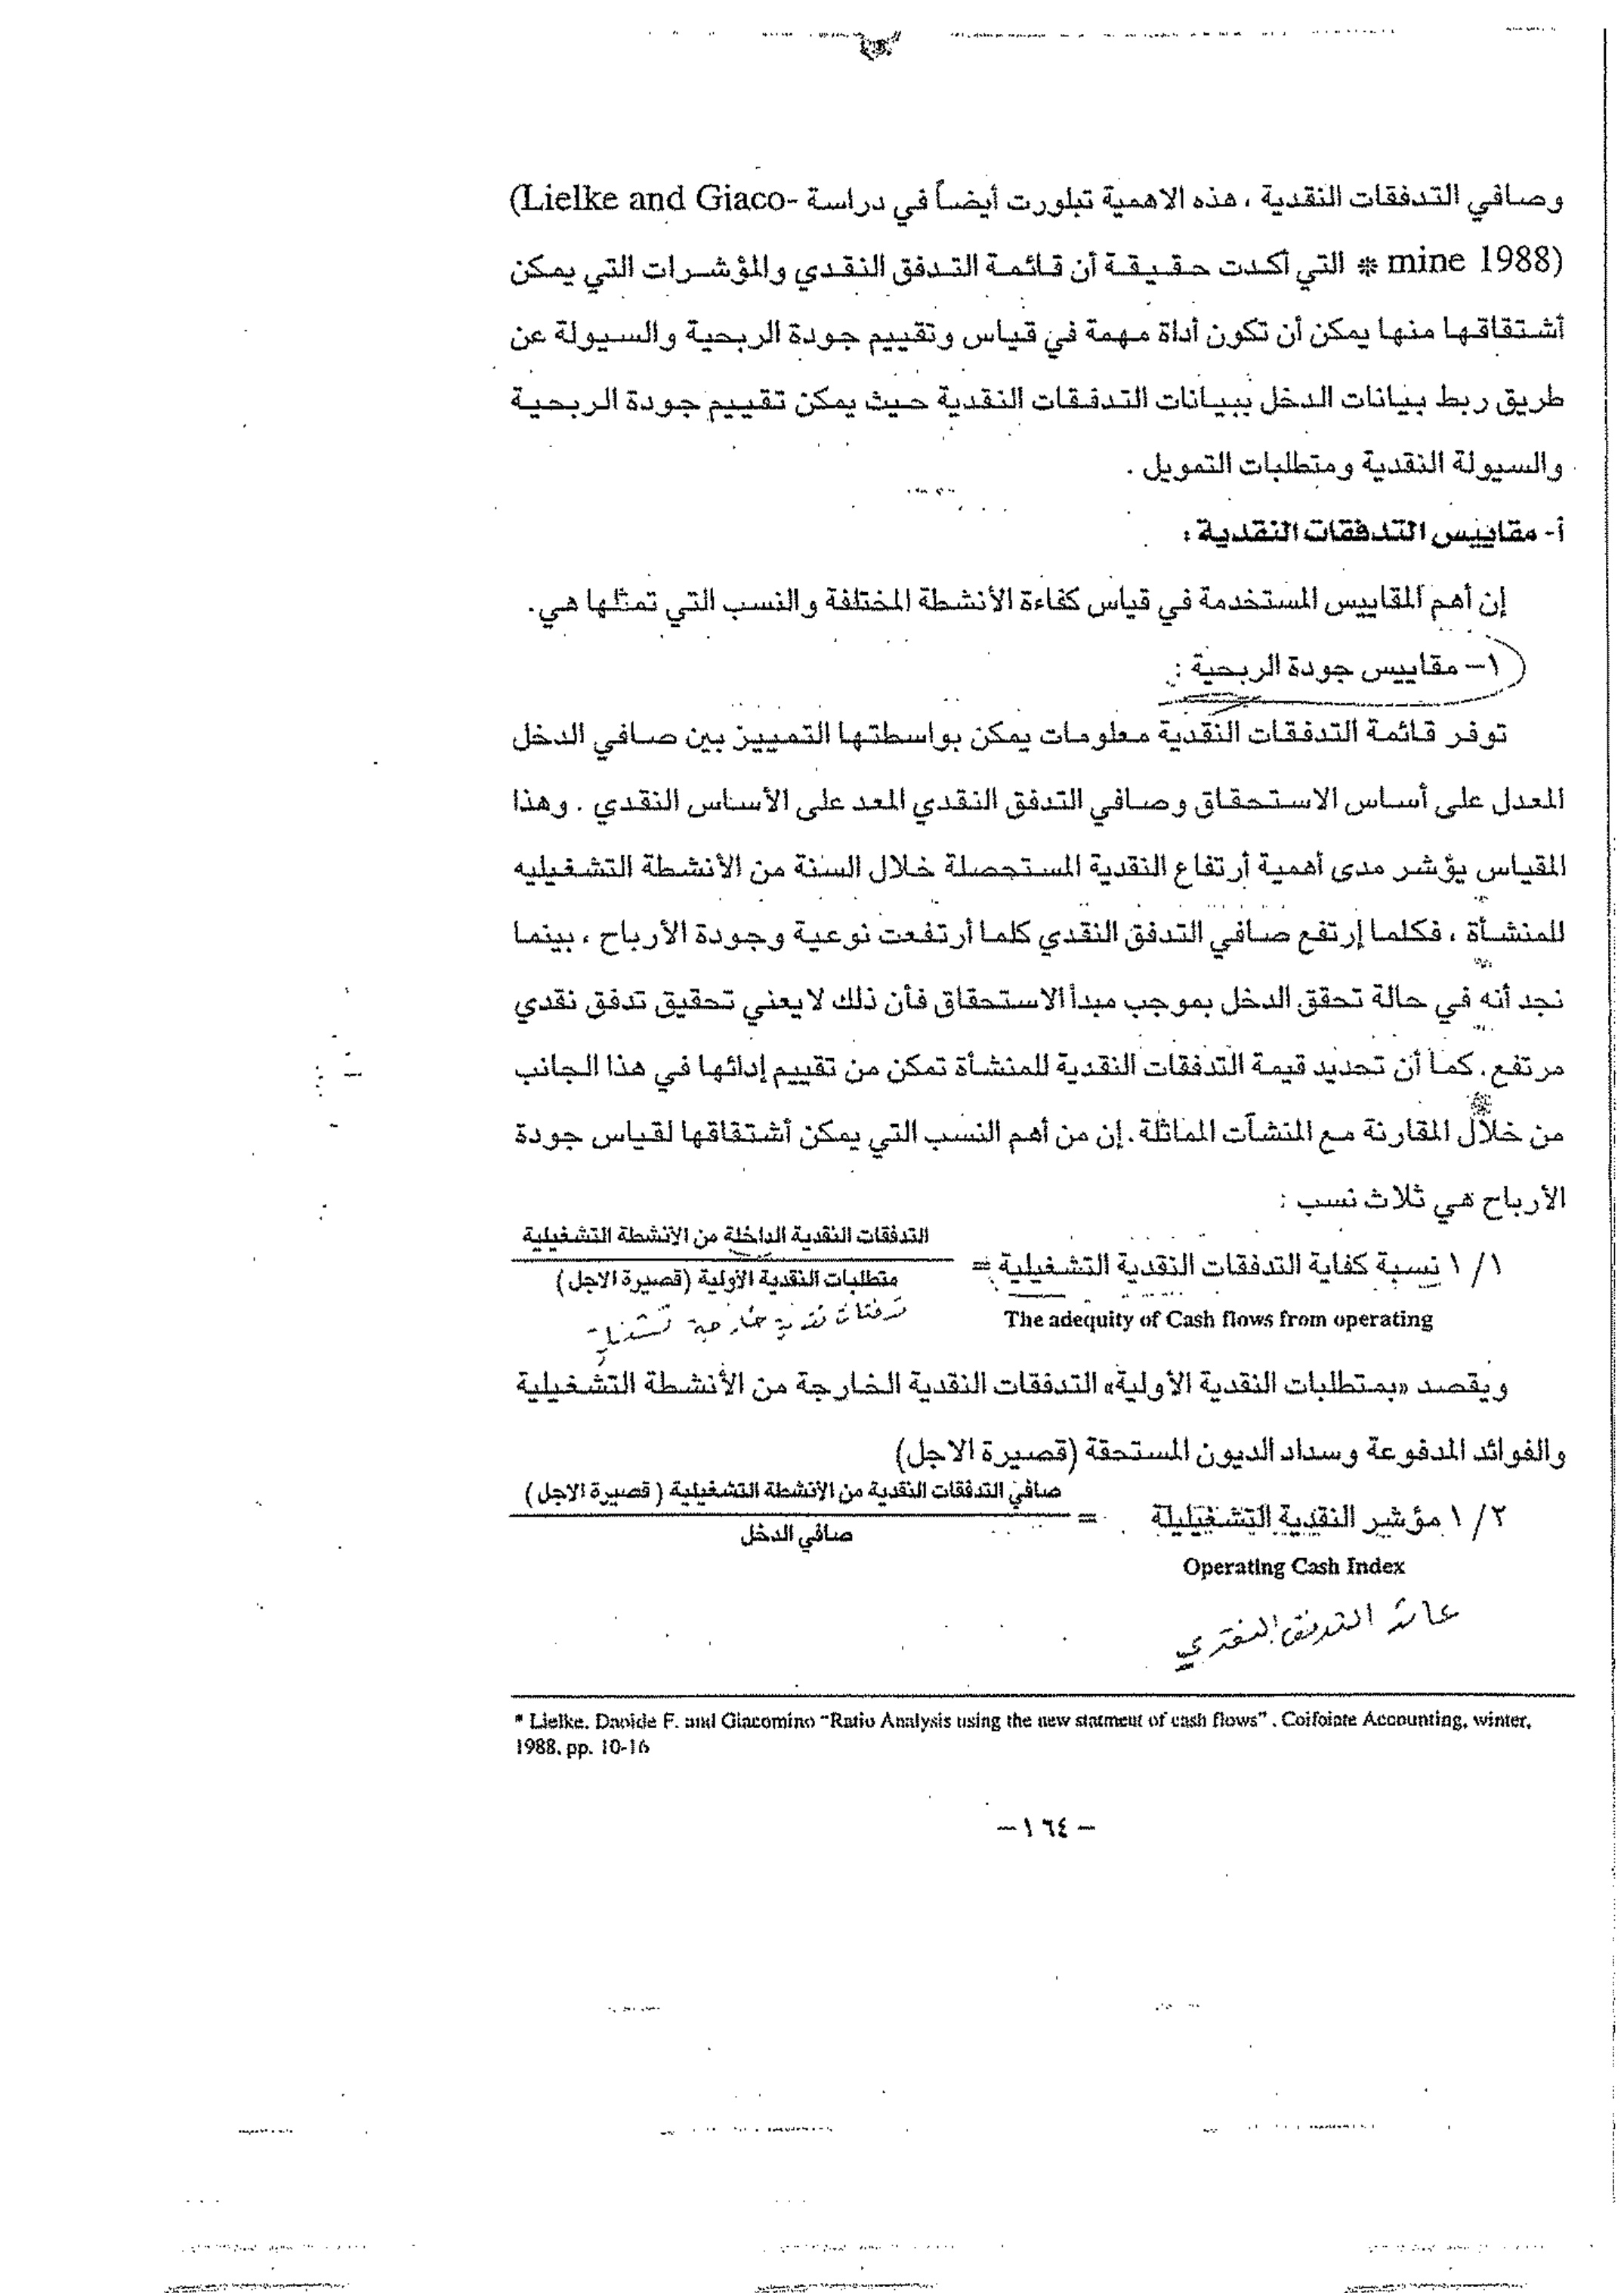 وصافي التدفقات النقدية ، هذه الاهمية تبلورت أيضاً في دراسة (Lielke and Giaco-
mine 1988) * التي أكدت حقيقة أن قائمة التدفق النقدي والمؤشرات التي يمكن
أشتقاقها منها يمكن أن تكون أداة مهمة في قياس وتقييم جودة الربحية والسيولة عن
طريق ربط بيانات الدخل ببيانات التدفقات النقدية حيث يمكن تقييم جودة الربحية
والسيولة النقدية ومتطلبات التمويل .
أ- مقاييس التدفقات النقدية :
إن أهم المقاييس المستخدمة في قياس كفاءة الأنشطة المختلفة والنسب التي تمثلها هي.
١– مقاييس جودة الربحية :
توفر قائمة التدفقات النقدية معلومات يمكن بواسطتها التمييز بين صافي الدخل
المعدل على أساس الاستحقاق وصافي التدفق النقدي المعد على الأساس النقدي . وهذا
المقياس يؤشر مدى أهمية أرتفاع النقدية المستحصلة خلال السنة من الأنشطة التشغيليه
للمنشأة ، فكلما إرتفع صافي التدفق النقدي كلما أرتفعت نوعية وجودة الأرباح ، بينما
نجد أنه في حالة تحقق الدخل بموجب مبدأ الاستحقاق فأن ذلك لا يعني تحقيق تدفق نقدي
مرتفع. كما أن تحديد قيمة التدفقات النقدية للمنشأة تمكن من تقييم إدائها في هذا الجانب
من خلال المقارنة مع المنشآت المماثلة. إن من أهم النسب التي يمكن أشتقاقها لقياس جودة
الأرباح هي ثلاث نسب :
التدفقات النقدية الداخلة من الأنشطة التشغيلية
١/ ١ نسبة كفاية التدفقات النقدية التشغيلية =
متطلبات النقدية الأولية (قصيرة الاجل)
The adequity of Cash flows from operating
تدفقات نقدية خارجة تشغيلية
ويقصد «بمتطلبات النقدية الأولية» التدفقات النقدية الخارجة من الأنشطة التشغيلية
والفوائد المدفوعة وسداد الديون المستحقة (قصيرة الاجل)
صافي التدفقات النقدية من الأنشطة التشغيلية ( قصيرة الاجل)
٢/ ١ مؤشر النقدية التشغيليلة =
صافي الدخل
Operating Cash Index
عائد التدفق النقدي
* Lielke. Daoide F. and Giacomino "Ratio Analysis using the new statment of cash flows" . Coifoiate Accounting, winter,
1988. pp. 10-16
– ١٦٤ –